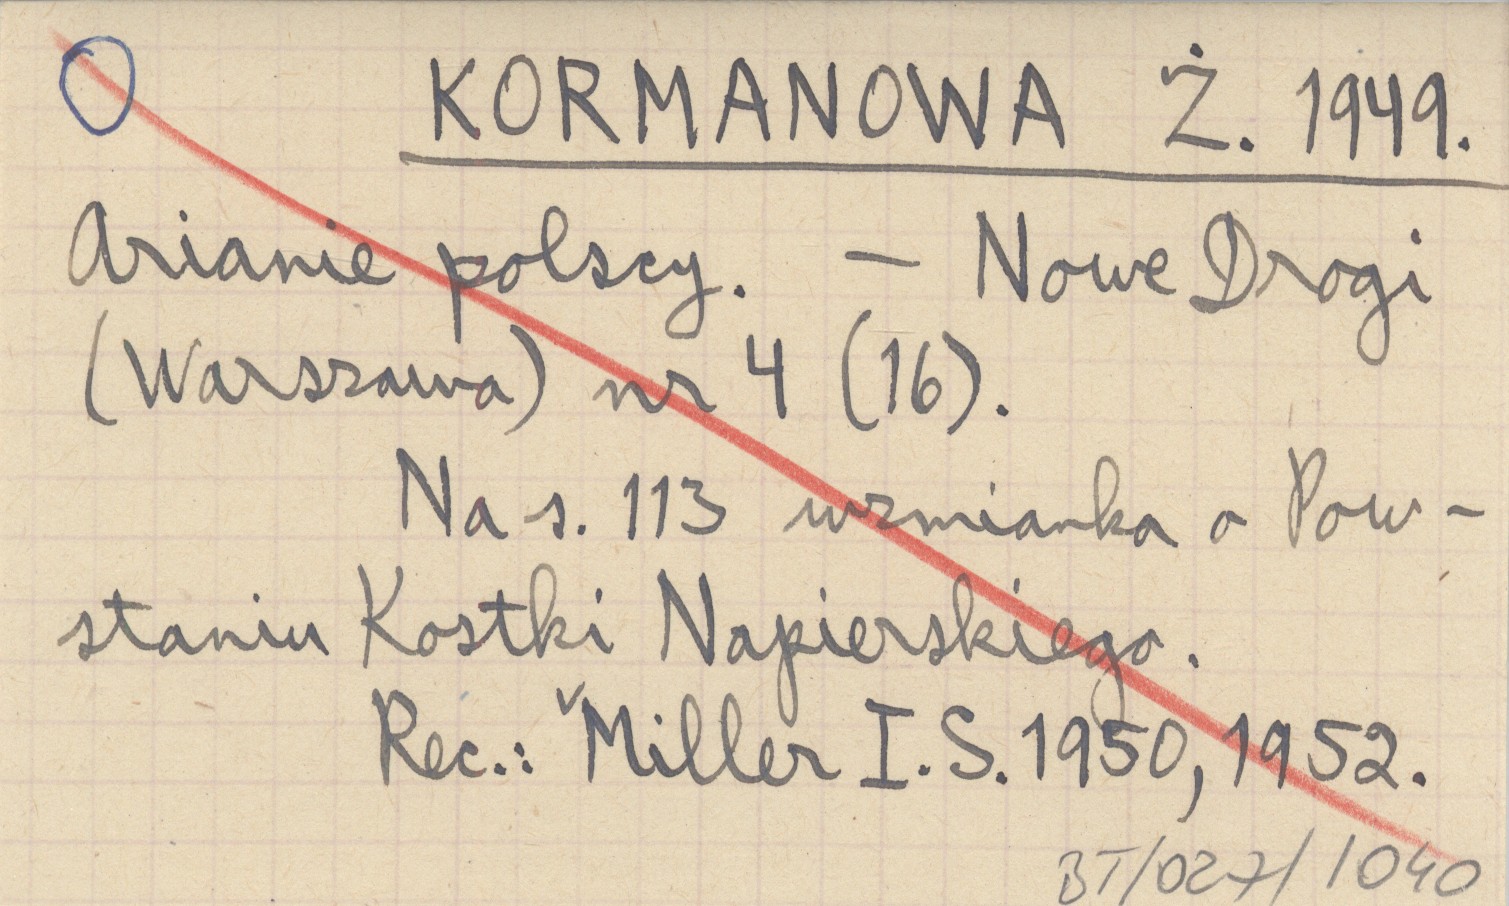 KORMANOWA Ż. 1949.
Arianie polscy. — Nowe Drogi
(Warszawa) nr 4 (16).
Na s. 113 wzmianka o Pow-
staniu Kostki Napierskiego.
Rec.: Miller I. S. 1950, 1952.
BT/027/1040